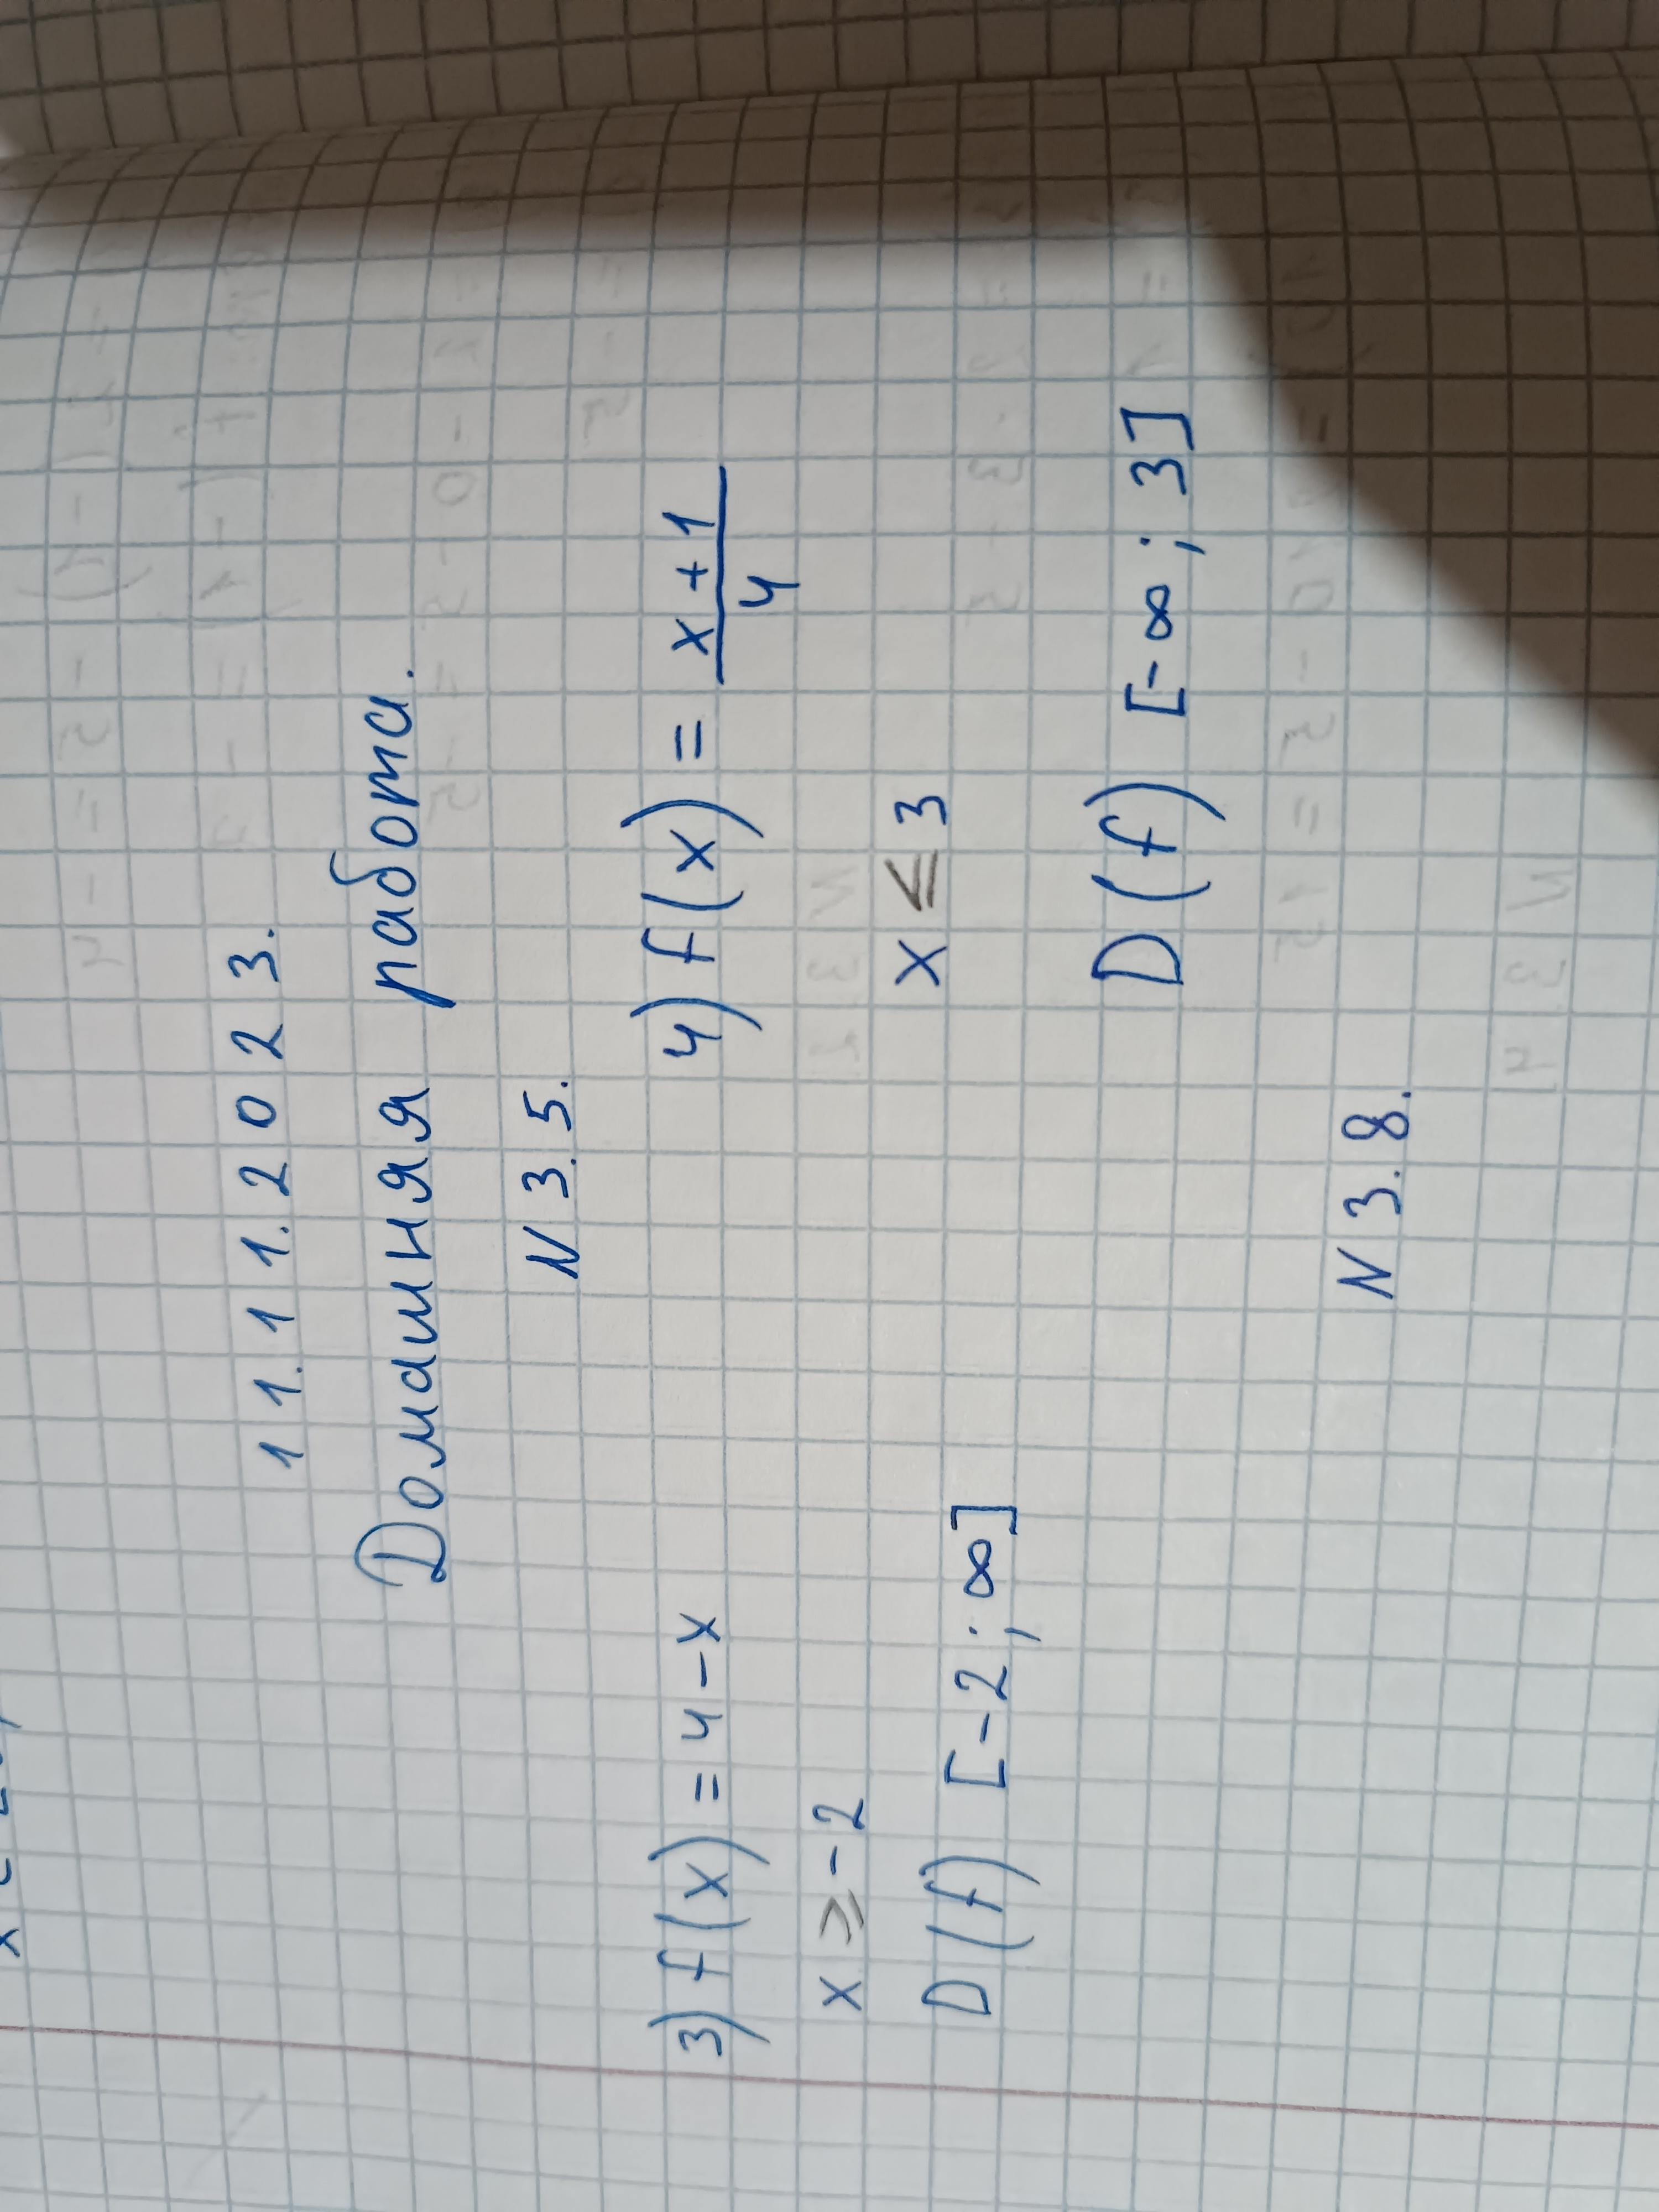 11.11.2023.
Домашняя работа.
N 3.5.
3) f(x) = 4 - x
x ⩾ -2
D(f) [-2; ∞]
4) f(x) = \frac{x + 1}{4}
x ≤ 3
D(f) [-∞; 3]
N 3.8.